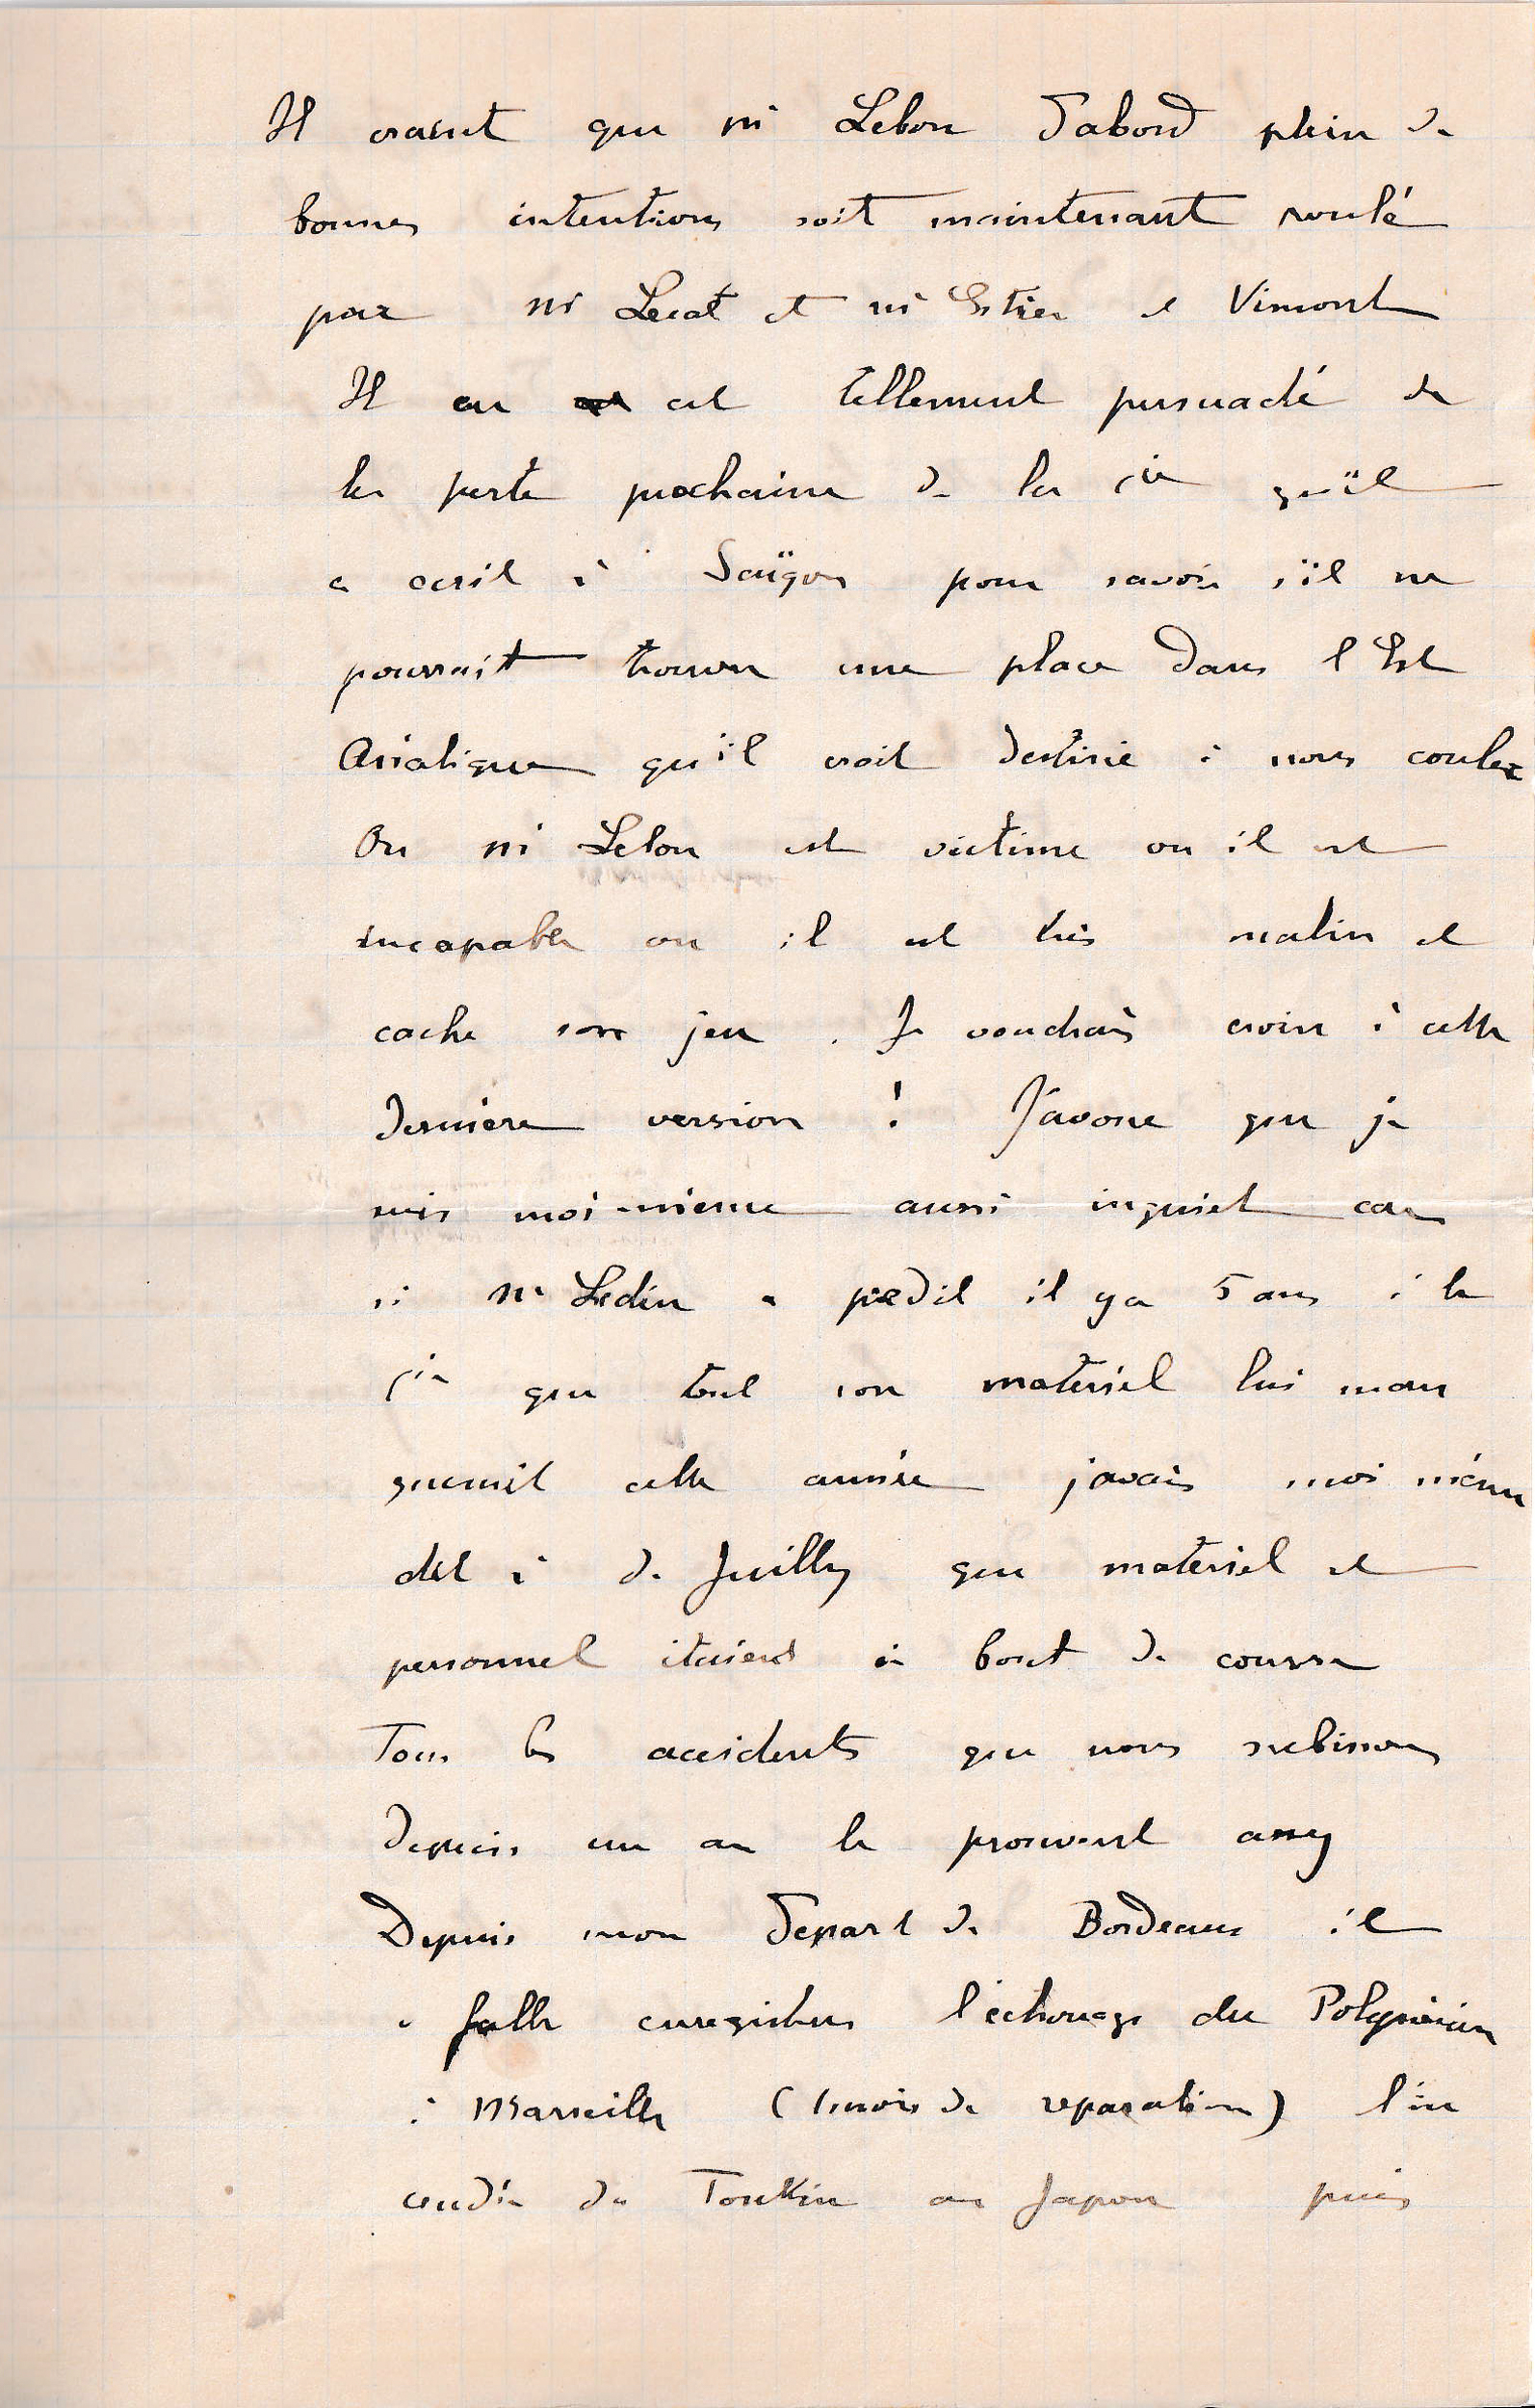 Il craint que Mr Lebon d'abord plein de
bonnes intentions soit maintenant roulé
par Mr Lecat et Mr Estier et Vimont
Il en est tellement persuadé de
la perte prochaine de la Cie qu'il
a écrit à Saïgon pour savoir s'il ne
pourrait trouver une place dans l'Est
Asiatique qu'il croit destiné à nous couler
Ou Mr Lebon est victime ou il est
incapable ou il est très malin et
cache son jeu. Je voudrais croire à cette
dernière version ! J'avoue que je
suis moi-même aussi inquiet car
si Mr Ledin a prédit il y a 5 ans à la
Cie que tout son matériel lui man
querait cette année j'avais moi même
dit à de Juilly que matériel et
personnel étaient à bout de course
Tous les accidents que nous subissons
depuis un an le prouvent assez
Depuis mon départ de Bordeaux il
a fallu enregistrer l'échouage du Polynésien
à Marseille (1 mois de reparation) l'in
cendie du Tonkin au Japon puis